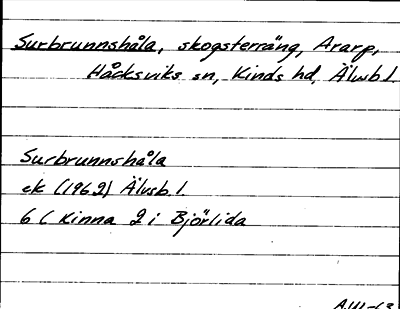 Surbrunnshåla, skogsterräng, Ararp,
Håcksviks sn, Kinds hd, Älvsb l.
Surbrunnshåla
ek (1962) Älvsb. l.
6 C Kinna 2 i Björlida